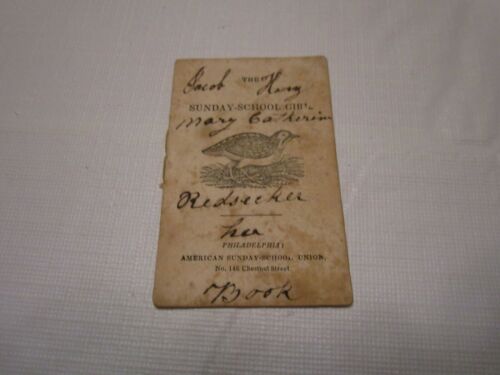 Jacob THE Henry
SUNDAY-SCHOOL GIRL.
Mary Catherine
Redsecker
her
PHILADELPHIA:
AMERICAN SUNDAY-SCHOOL UNION,
No. 146 Chestnut Street.
Book